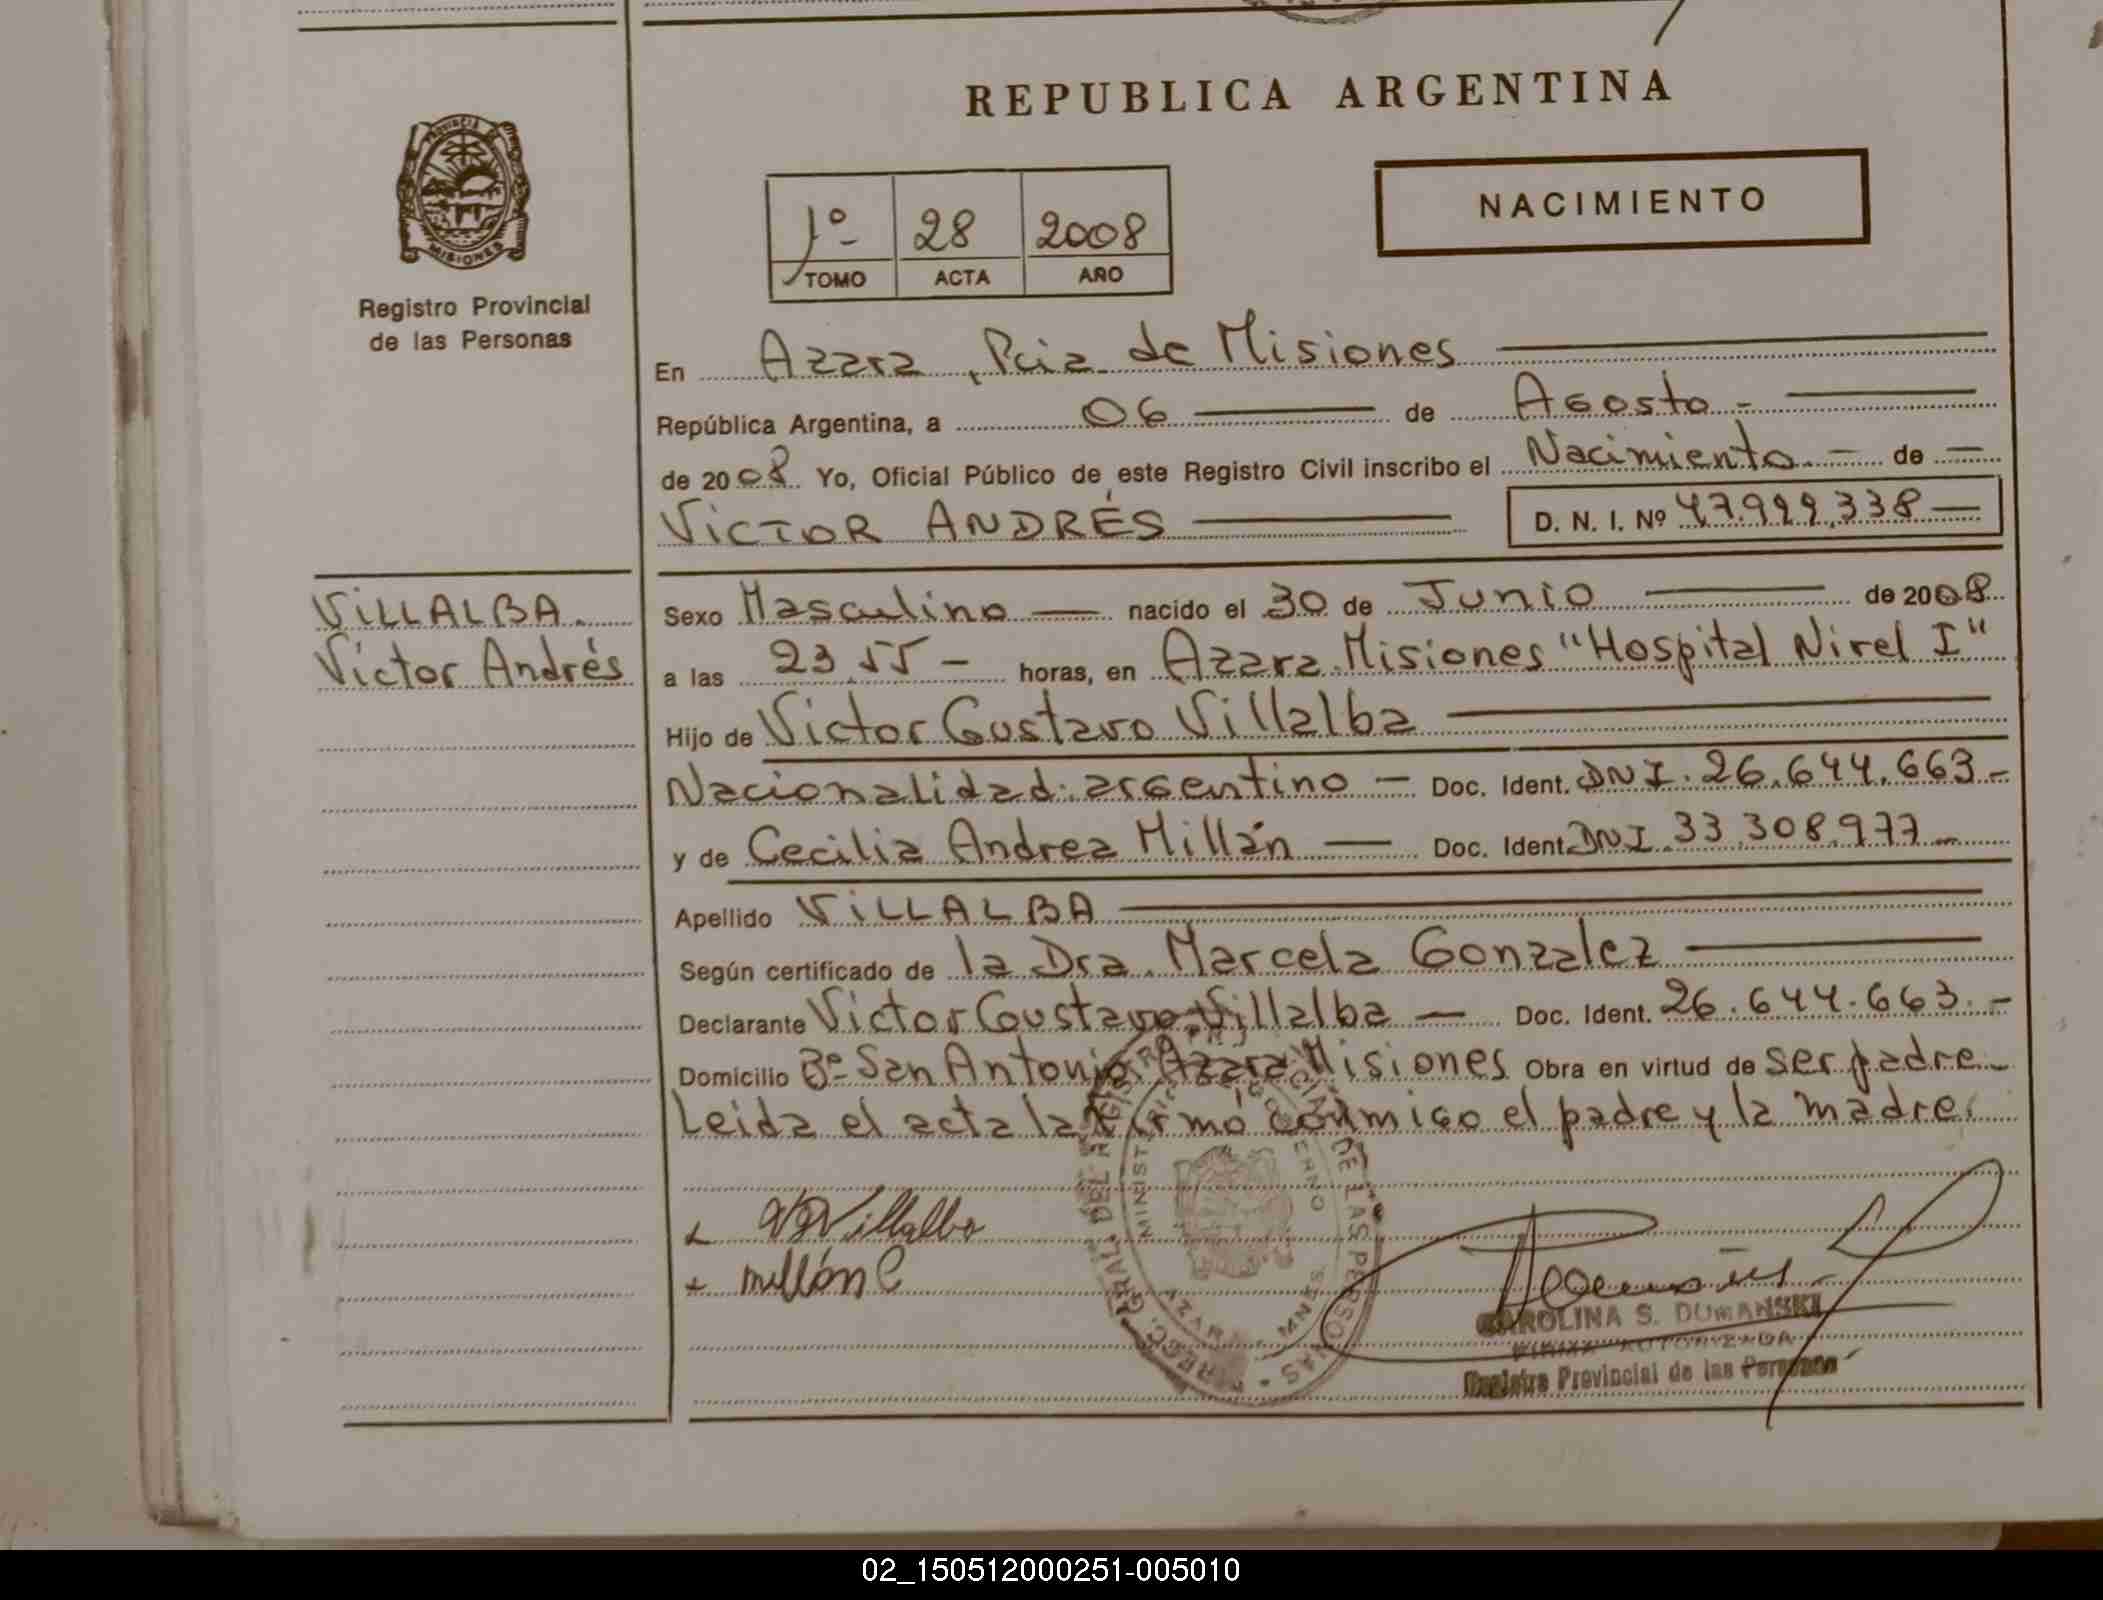 REPUBLICA ARGENTINA
PROVINCIA DE
MISIONES
Registro Provincial
de las Personas
1º 28 2008
TOMO ACTA AÑO
NACIMIENTO
En Azara, Pcia de Misiones
República Argentina, a 06 de Agosto
de 2008 Yo, Oficial Público de este Registro Civil inscribo el Nacimiento de
VICTOR ANDRÉS D. N. I. Nº 47.999.338
VILLALBA
Víctor Andrés
Sexo Masculino nacido el 30 de Junio de 2008
a las 23 55 horas, en Azara Misiones "Hospital Nivel I"
Hijo de Victor Gustavo Villalba
Nacionalidad: argentino Doc. Ident. DNI. 26.644.663
y de Cecilia Andrea Millán Doc. Ident. DNI. 33.308.977
Apellido VILLALBA
Según certificado de la Dra. Marcela Gonzalez
Declarante Victor Gustavo Villalba Doc. Ident. 26.644.663
Domicilio Bº San Antonio Azara Misiones Obra en virtud de ser padre
Leida el acta la firmó conmigo el padre y la madre
Villalba
Millán C
DIREC. GRAL. DEL REGISTRO PROVINCIAL DE LAS PERSONAS
MINISTERIO GOBIERNO
AZARA MNES.
CAROLINA S. DUMANSKI
FIRMA AUTORIZADA
Registro Provincial de las Personas
02_150512000251-005010